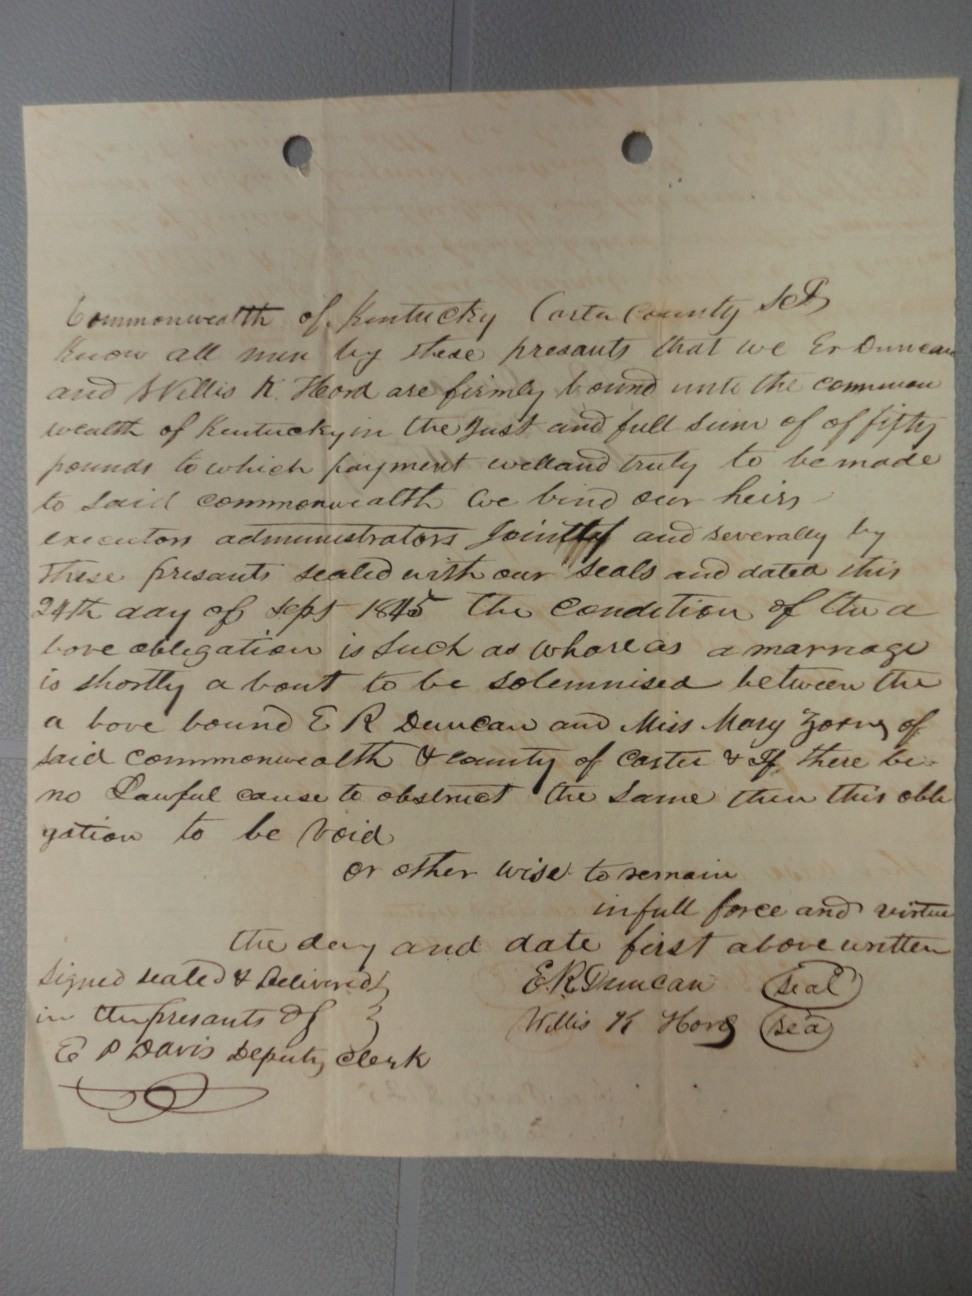 Commonwealth of Kentucky Carter County Sct
Know all men by these presants that we E r Duncan
and Willis K. Hord are firmly bound unto the common
wealth of Kentucky in the Just and full sum of of fifty
pounds to which payment well and truly to be made
to said commonwealth we bind our heirs
executors administrators Jointly and severally by
these presants sealed with our seals and dated this
24th day of Sept 1845 the Condition of the a
bove obligation is such as whareas a marriage
is shortly a bout to be solemnised between the
a bove bound E R Duncan and Miss Mary Zorn of
said commonwealth & county of Carter & If there be
no Lawful cause to obstruct the same then this obli
gation to be void
or other wise to remain
in full force and virtue
the day and date first above written
Signed sealed & Delivered
in the presants of
E P Davis Deputy Clerk
E. R. Duncan seal
Willis K Hord sea